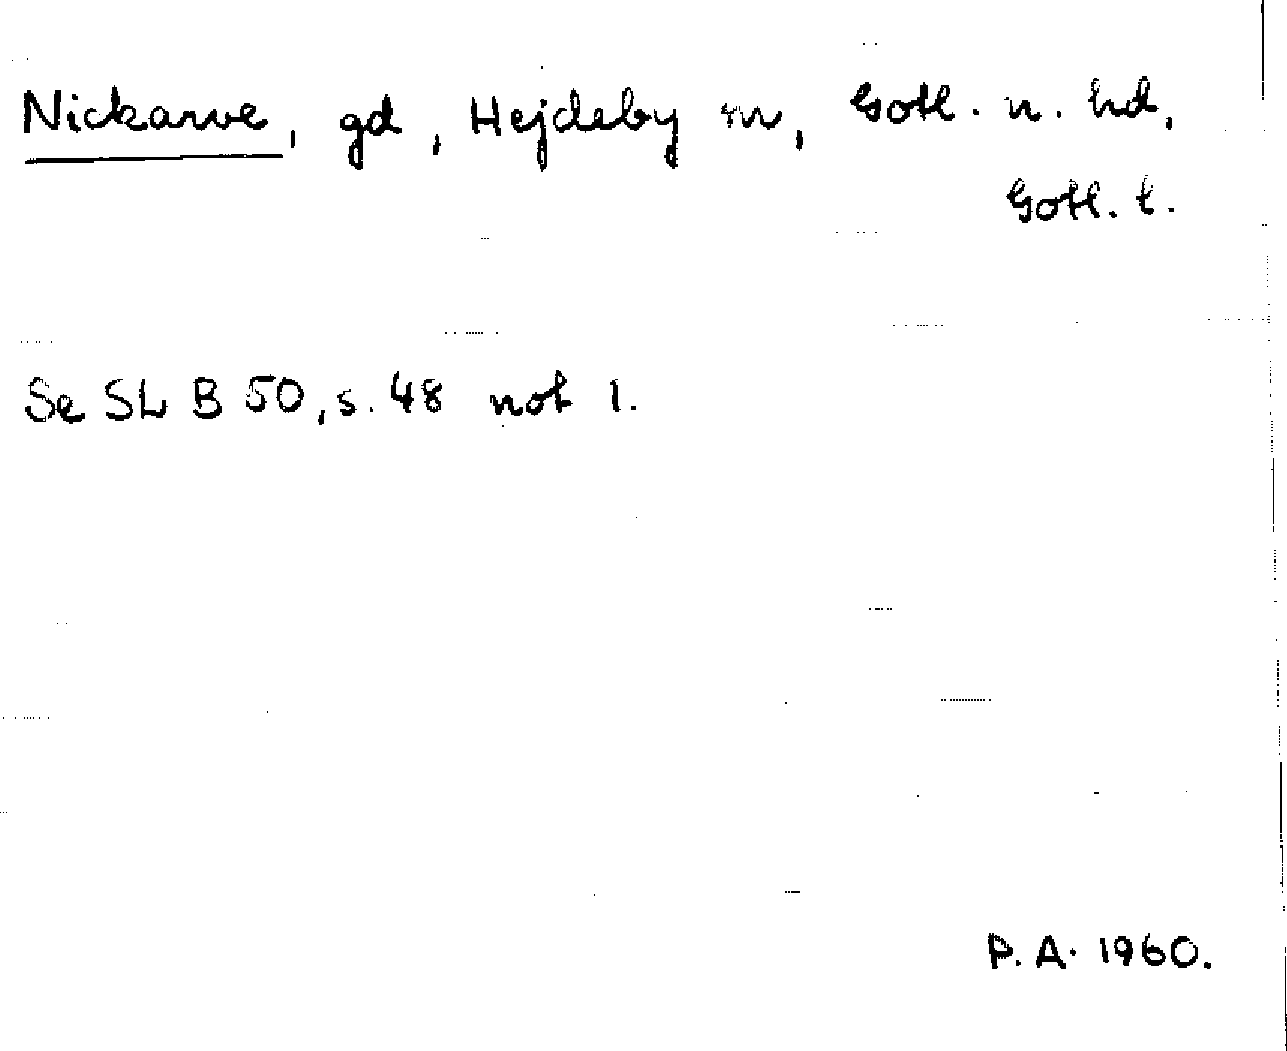 Nickarve, gd, Hejdeby sn, Gotl. n. hd,
Gotl. t.
Se SL B 50, s. 48 not 1.
P. A. 1960.